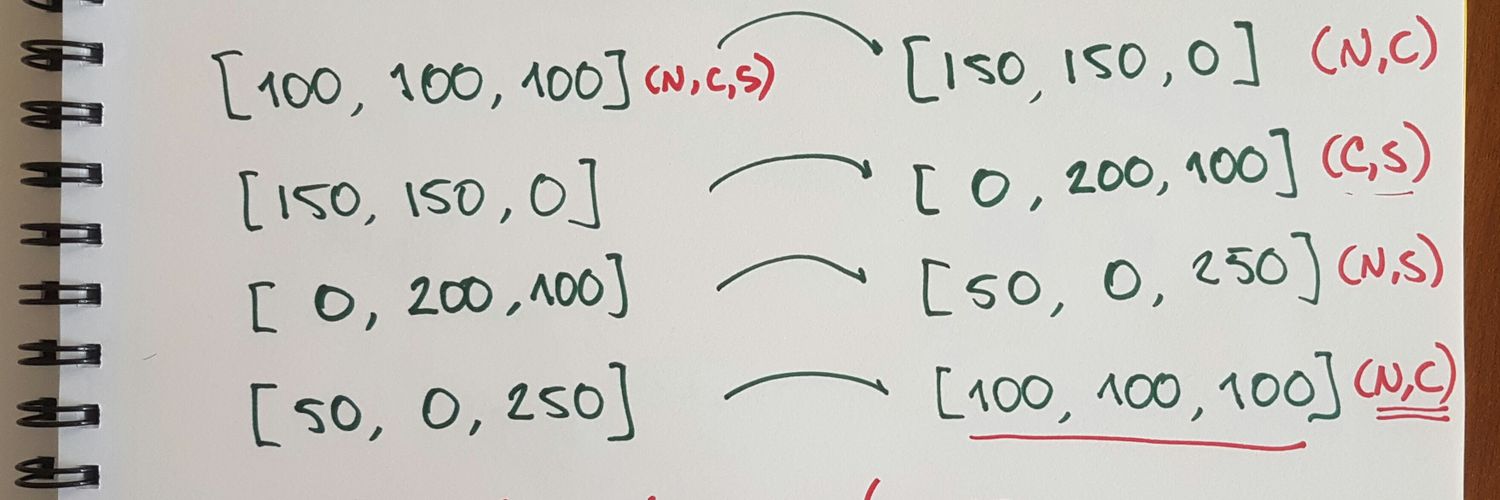 [100, 100, 100] (N,C,S) [150, 150, 0] (N,C)
[150, 150, 0] [0, 200, 100] (C,S)
[0, 200, 100] [50, 0, 250] (N,S)
[50, 0, 250] [100, 100, 100] (N,C)